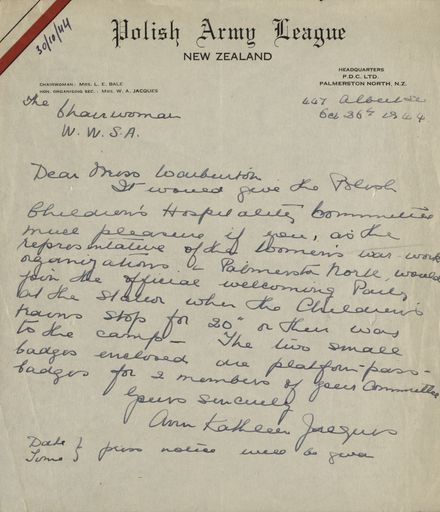 30/10/44
Polish Army League
NEW ZEALAND
CHAIRWOMAN: MRS. L. E. BALE
HON. ORGANISING SEC.: MRS. W. A. JACQUES
HEADQUARTERS
P.D.C. LTD.
PALMERSTON NORTH, N.Z.
447 Albert St
Oct 26th 1944
The Chairwoman
W.W.S.A.
Dear Miss Warburton
It would give the Polish
Children's Hospitality Committee
much pleasure if you, as the
representative of the Women's war-work
organizations in Palmerston North, would
join the official welcoming Party
at the station when the Children's
trains stop for 20" on their way
to the camp - The two small
badges enclosed are platform-pass-
badges for 2 members of your Committee
Yours sincerely
Ann Kathleen Jacques
Date } press notice will be given
Time }